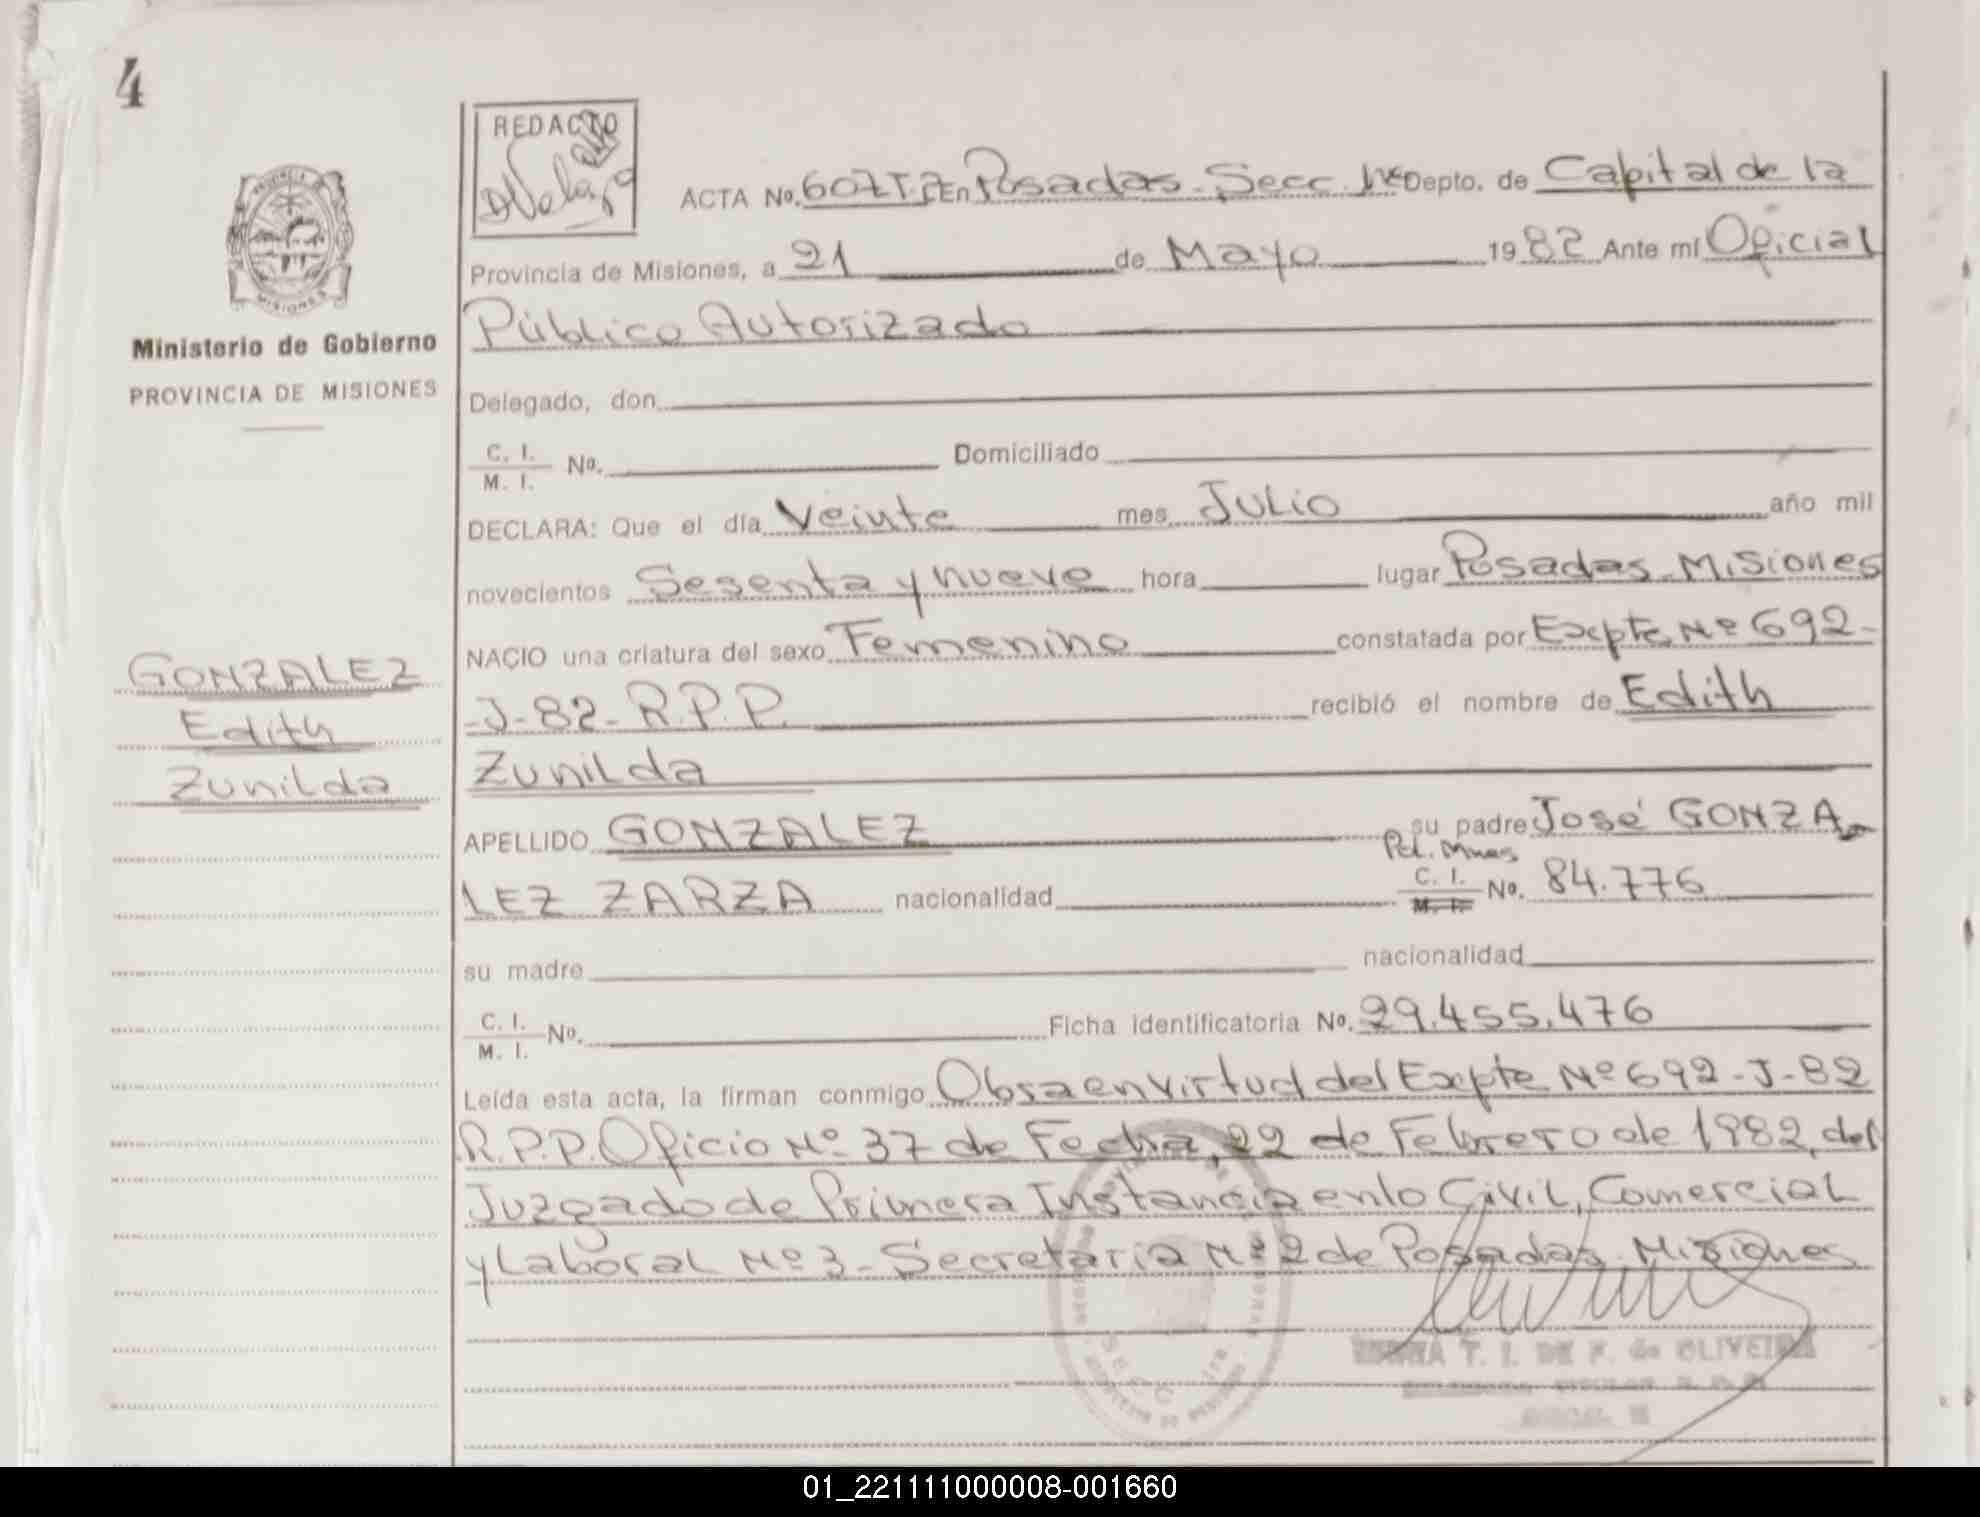 4
REDACTO
ACTA No. 607 T. En Posadas - Secc. 1ra Depto. de Capital de la
Provincia de Misiones, a 21 de Mayo 1982 Ante mí Oficial
Público Autorizado
Ministerio de Gobierno
PROVINCIA DE MISIONES
Delegado, don
C. I.
M. I. No. Domiciliado
DECLARA: Que el día Veinte mes Julio año mil
novecientos Sesenta y nueve hora lugar Posadas - Misiones
NACIO una criatura del sexo Femenino constatada por Expte Nº 692-
-J-82- R.P.P. recibió el nombre de Edith
Zunilda
GONZALEZ
Edith
Zunilda
APELLIDO GONZALEZ su padre José GONZA
LEZ ZARZA nacionalidad Pcl. Mnes C. I. M. I. No. 84.776
su madre nacionalidad
C. I.
M. I. No. Ficha identificatoria No. 29.455.476
Leída esta acta, la firman conmigo Obra en virtud del Expte Nº 692-J-82
R.P.P. Oficio Nº 37 de Fecha, 22 de Febrero de 1982, del
Juzgado de Primera Instancia en lo Civil, Comercial
y Laboral Nº 3 - Secretaría Nº 2 de Posadas Misiones
T. I. DE F. de OLIVEIRA
01_221111000008-001660